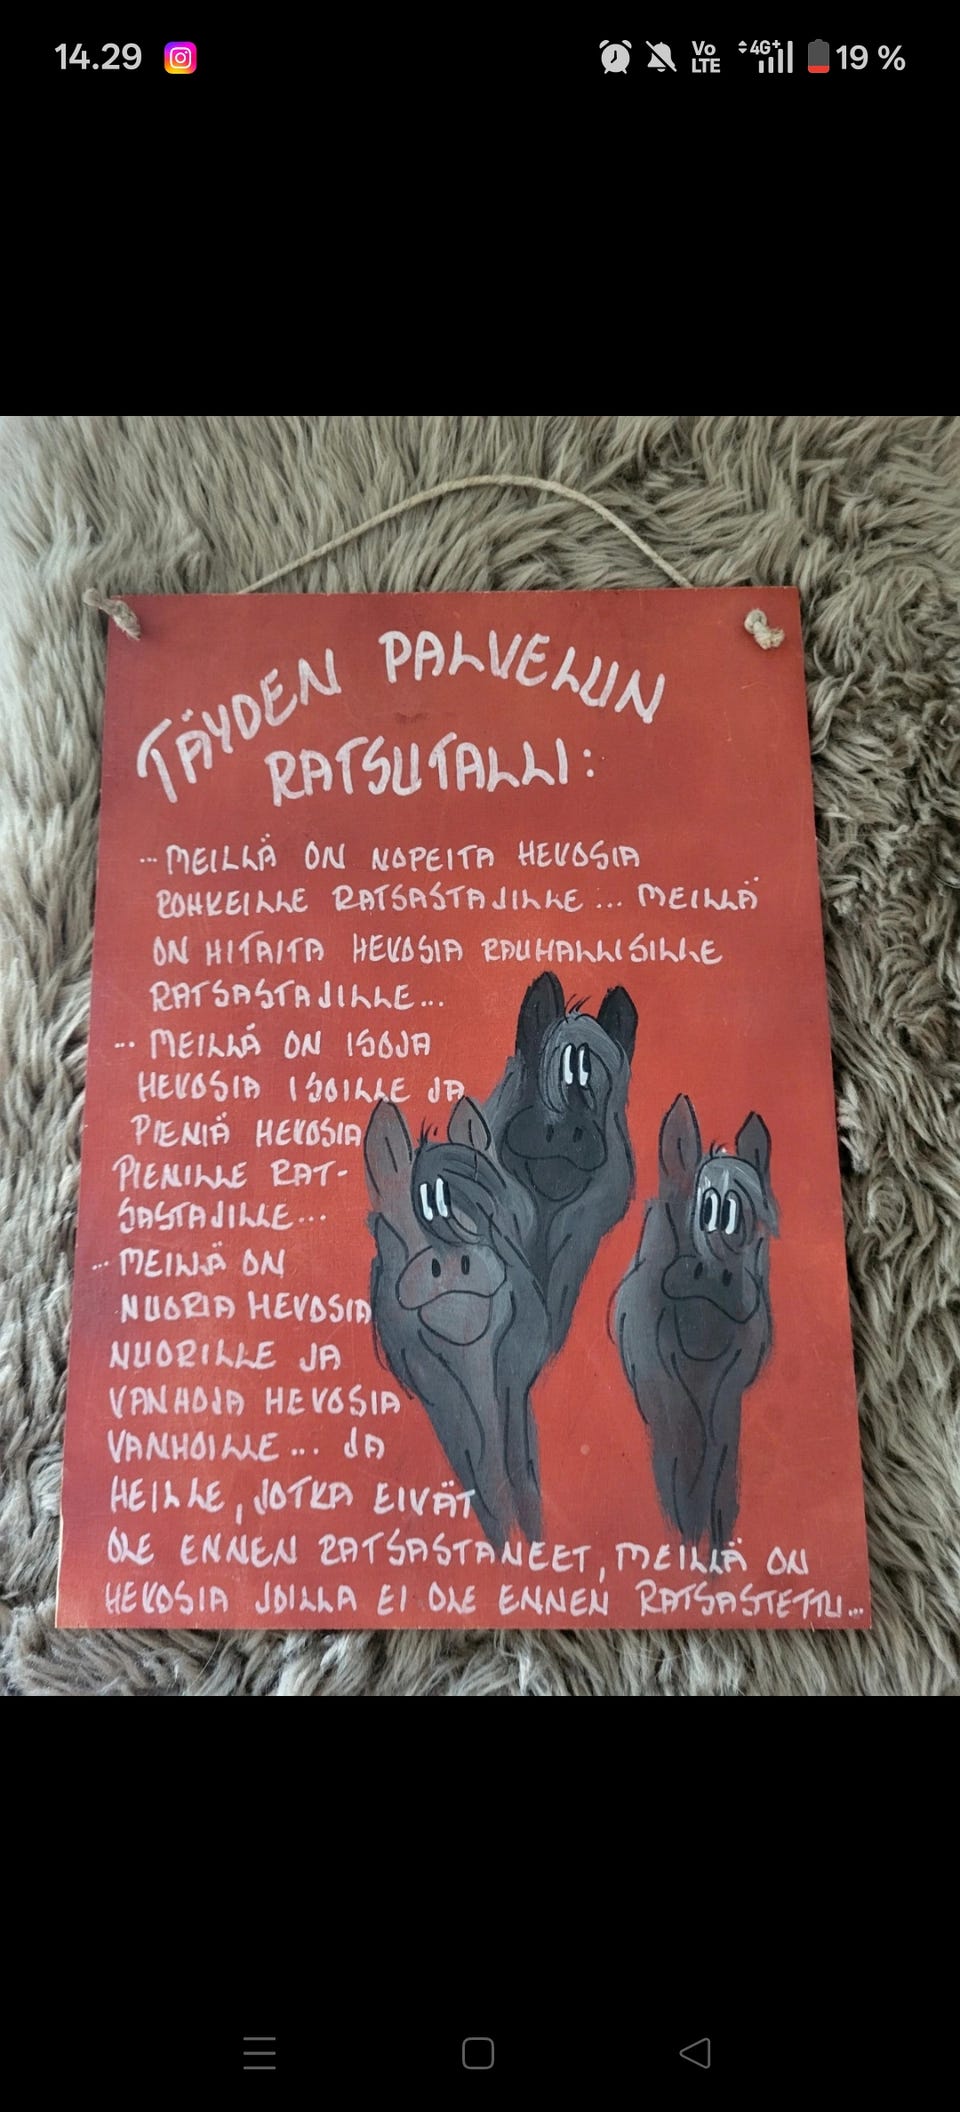 14.29
Vo LTE 4G+ 19 %
TÄYDEN PALVELUN
RATSUTALLI:
...MEILLÄ ON NOPEITA HEVOSIA
ROHKEILLE RATSASTAJILLE... MEILLÄ
ON HITAITA HEVOSIA RAUHALLISILLE
RATSASTAJILLE...
... MEILLÄ ON ISOJA
HEVOSIA ISOILLE JA
PIENIÄ HEVOSIA
PIENILLE RAT-
SASTAJILLE...
... MEILLÄ ON
NUORIA HEVOSIA
NUORILLE JA
VANHOJA HEVOSIA
VANHOILLE... JA
HEILLE, JOTKA EIVÄT
OLE ENNEN RATSASTANEET, MEILLÄ ON
HEVOSIA JOILLA EI OLE ENNEN RATSASTETTU...